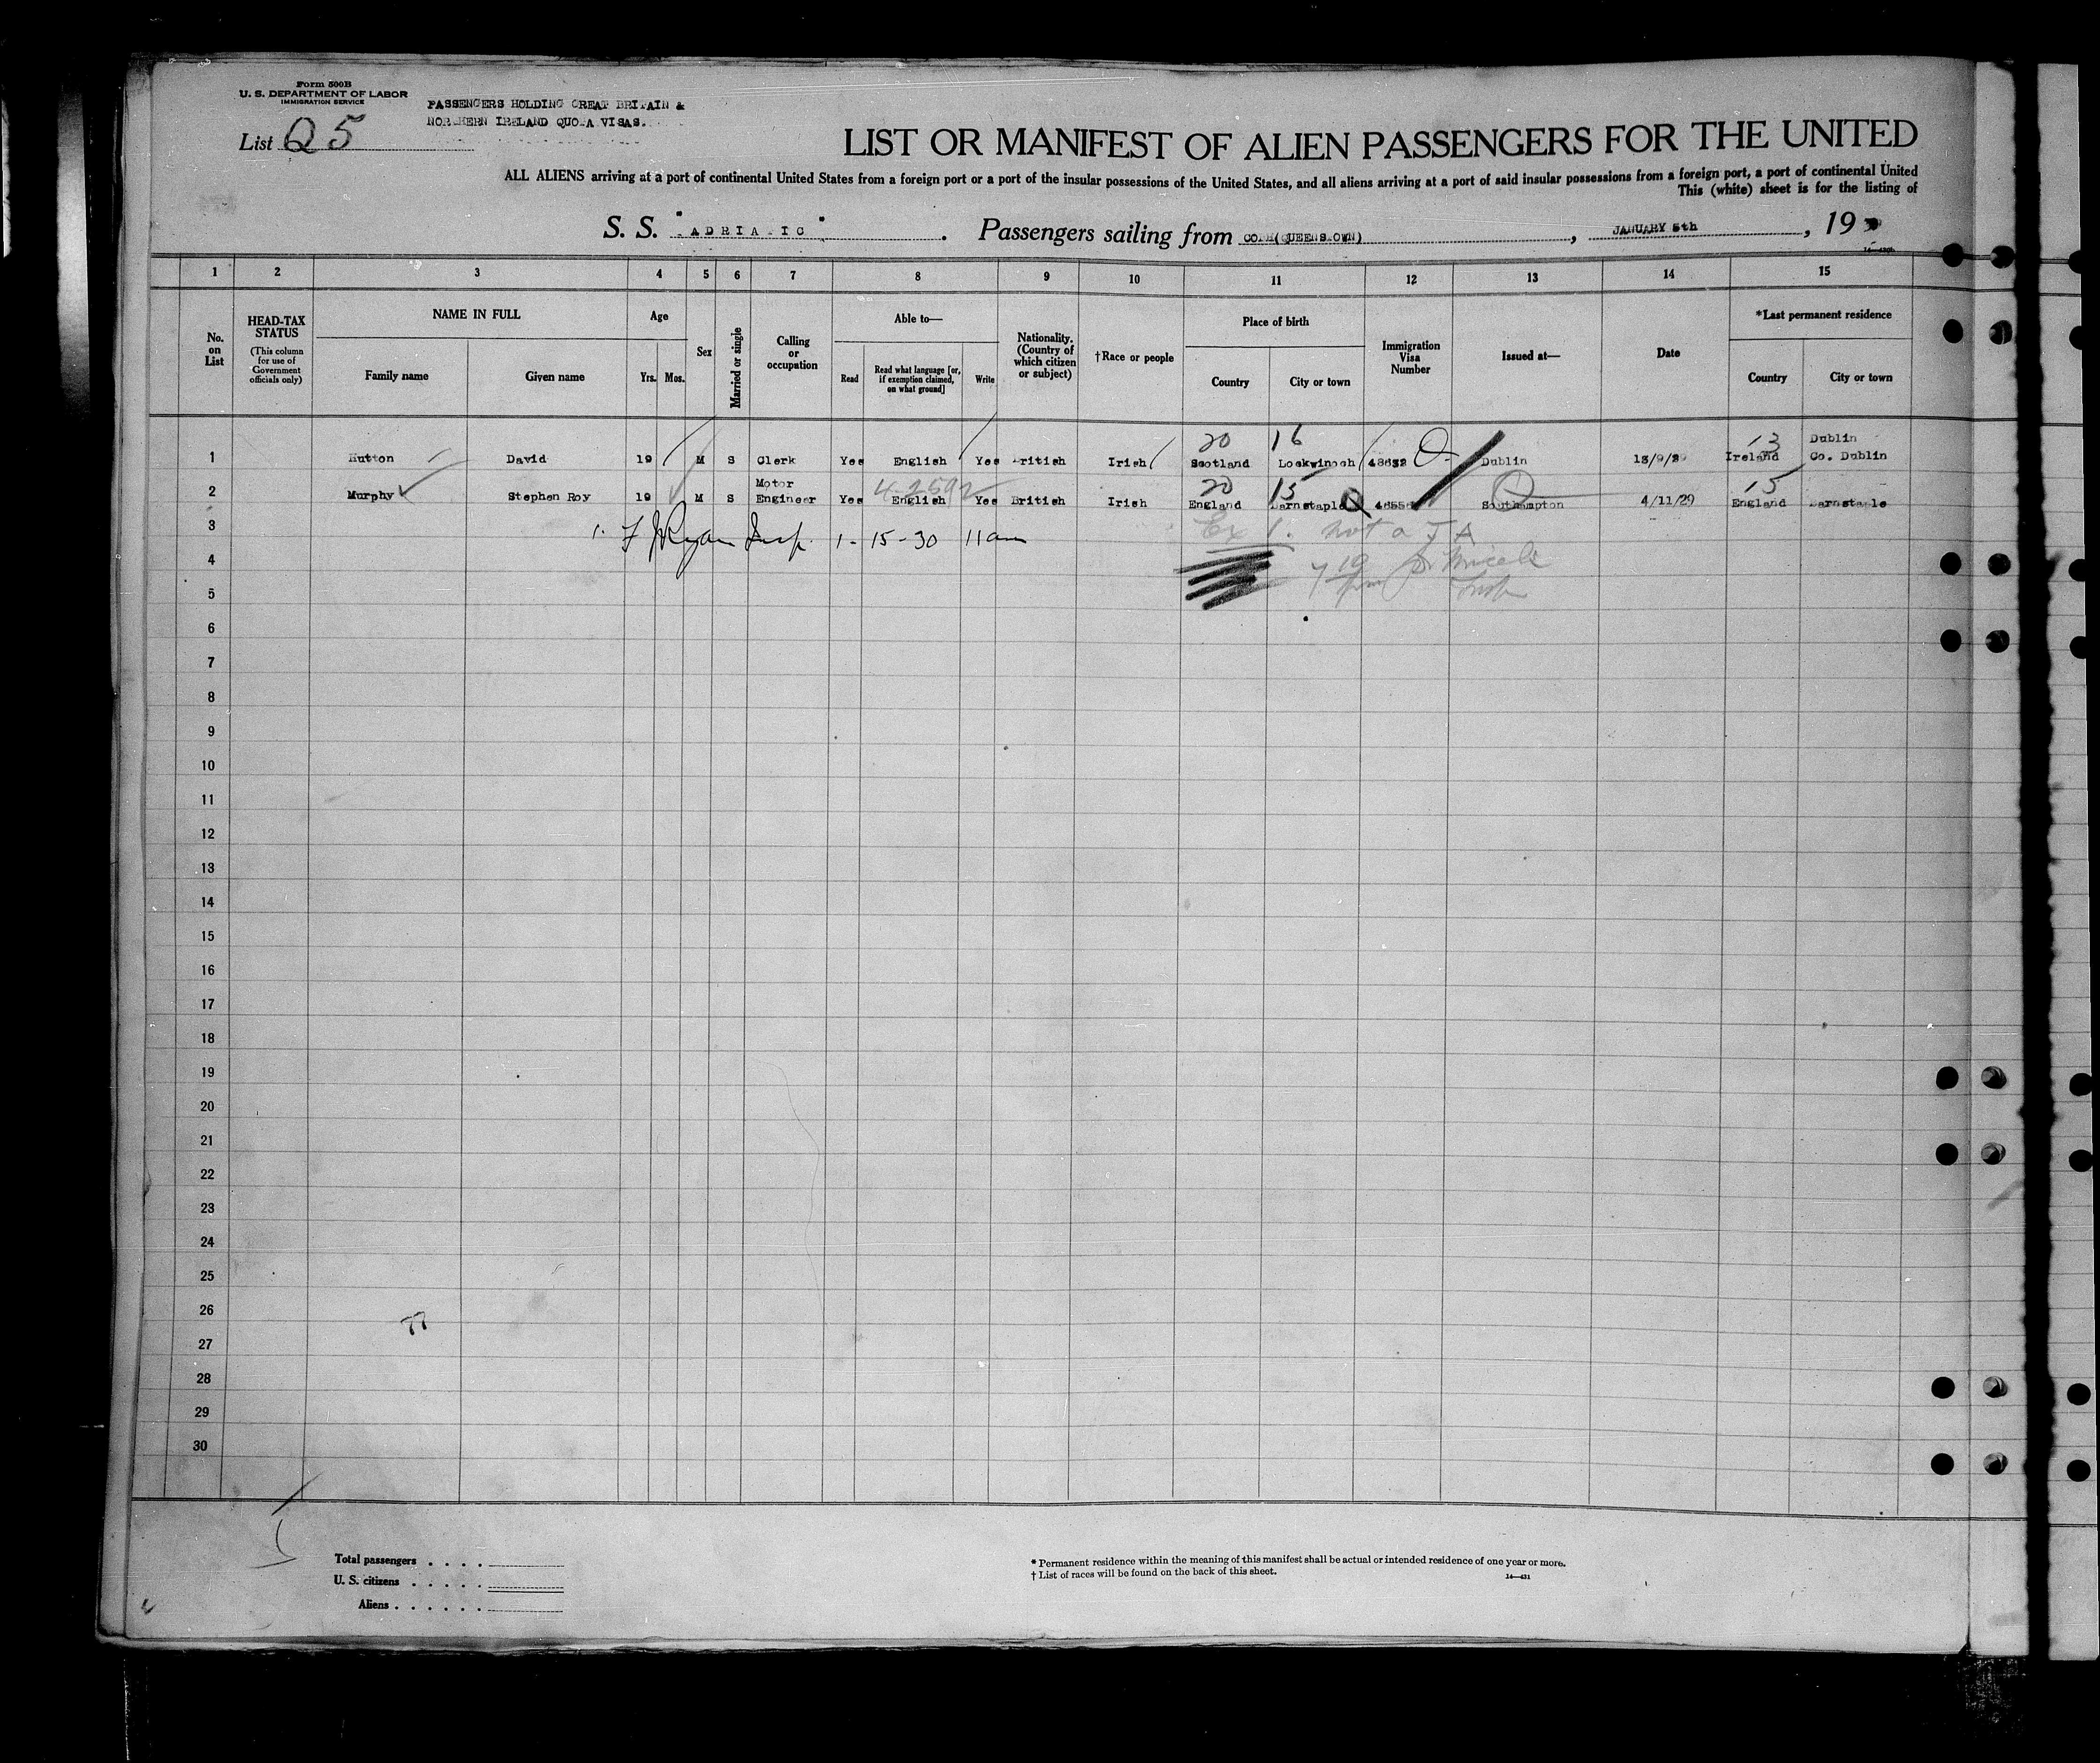 Form 500B
U. S. DEPARTMENT OF LABOR
IMMIGRATION SERVICE
PASSENGERS HOLDING GREAT BRITAIN &
NORTHERN IRELAND QUOTA VISAS.
List Q 5
LIST OR MANIFEST OF ALIEN PASSENGERS FOR THE UNITED
ALL ALIENS arriving at a port of continental United States from a foreign port or a port of the insular possessions of the United States, and all aliens arriving at a port of said insular possessions from a foreign port, a port of continental United
This (white) sheet is for the listing of
S. S. "ADRIATIC". Passengers sailing from COBH(QUEENSTOWN), JANUARY 5th, 19
1 2 3 4 5 6 7 8 9 10 11 12 13 14 15
No. on List
HEAD-TAX STATUS
(This column for use of Government officials only)
NAME IN FULL
Family name
Given name
Age
Yrs. Mos.
Sex
Married or single
Calling or occupation
Able to—
Read
Read what language [or, if exemption claimed, on what ground]
Write
Nationality. (Country of which citizen or subject)
†Race or people
Place of birth
Country
City or town
Immigration Visa Number
Issued at—
Date
*Last permanent residence
Country
City or town
20 16 13 Dublin
1 Hutton David 19 M S Clerk Yes English Yes British Irish Scotland Lockwinoch 48632 Dublin 13/9/29 Ireland Co. Dublin
Motor 4-2592 20 15 Q 15
2 Murphy Stephen Roy 19 M S Engineer Yes English Yes British Irish England Barnstaple Southampton 4/11/29 England Barnstaple
3 1. F J Ryan Insp. 1-15-30 11am
Ex 1. not a
4
5
6
7
8
9
10
11
12
13
14
15
16
17
18
19
20
21
22
23
24
25
26
77
27
28
29
30
Total passengers . . . .
U. S. citizens . . . . .
Aliens . . . . . .
* Permanent residence within the meaning of this manifest shall be actual or intended residence of one year or more.
† List of races will be found on the back of this sheet.
14—431